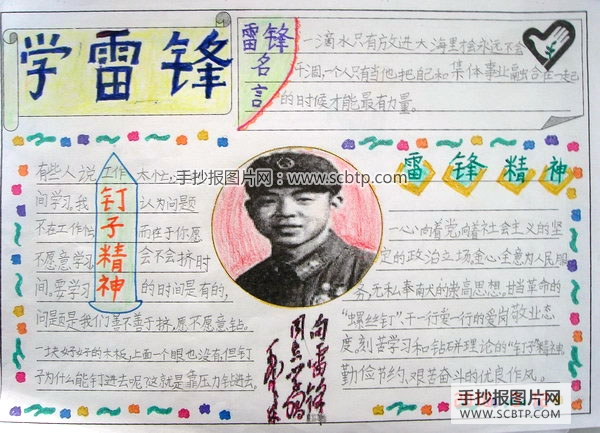 学雷锋
雷锋名言
一滴水只有放进大海里才会永远不会
干涸,一个人只有当他把自己和集体事业融合在一起
的时候才能最有力量。
手抄报图片网:www.scbtp.com
钉子精神
有些人说工作忙,
间学习,我认为问题
不在工作忙,而在于你愿
不愿意学习,会不会挤时
间。要学习的时间是有的,
问题是我们善不善于挤,愿不愿意钻。
一块好好的木板,上面一个眼也没有,但钉
子为什么能钉进去呢?这就是靠压力钉进去,
向雷锋
同志学习
毛泽东
雷锋精神
一心向着党,向着社会主义的坚
定的政治立场,全心全意为人民服
务,无私奉献的崇高思想。甘当革命的
“螺丝钉”、干一行爱一行的爱岗敬业态
度。刻苦学习和钻研理论的“钉子”精神,
勤俭节约、艰苦奋斗的优良作风。
手抄报图片网
WWW.SCBTP.COM